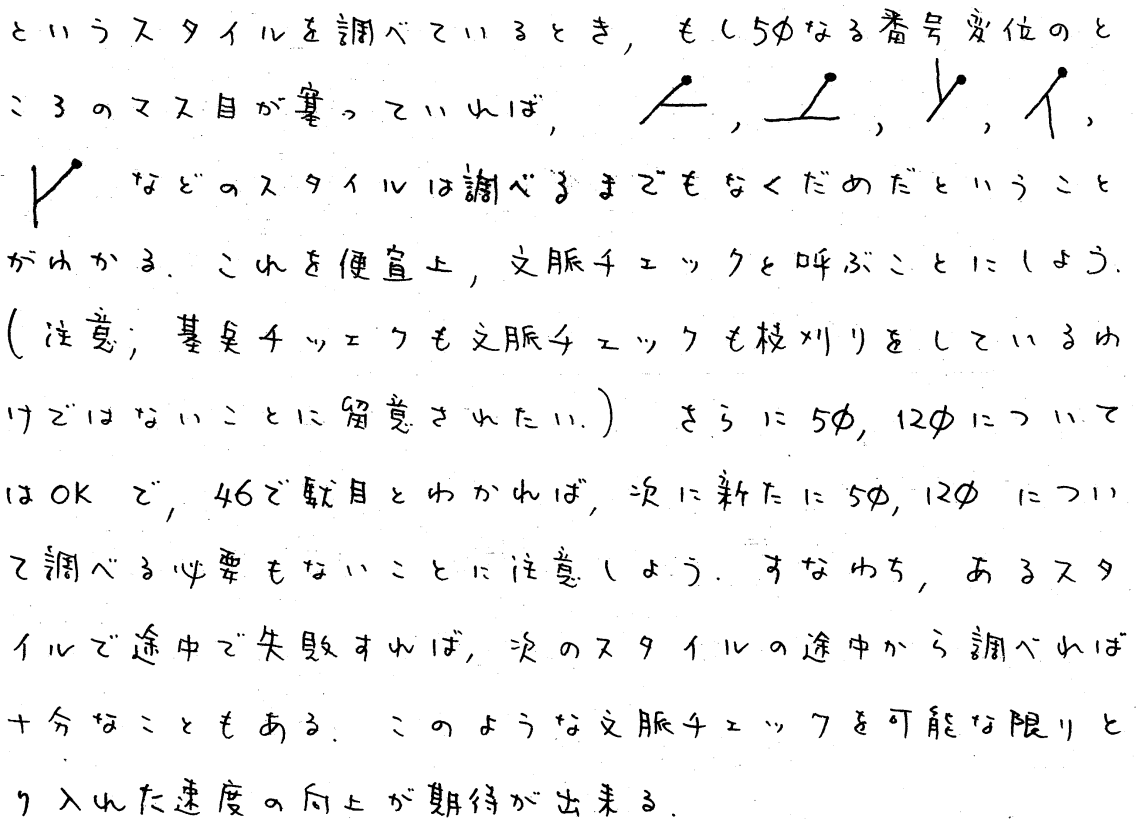 というスタイルを調べているとき, もし5φなる番号変位のと
ころのマス目が塞っていれば, , , , ,
などのスタイルは調べるまでもなくだめだということ
がわかる. これを便宜上, 文脈チェックと呼ぶことにしよう.
(注意; 基臭チッェクも文脈チェックも枝刈りをしているわ
けではないことに留意されたい.) さらに5φ, 12φについて
はOKで, 46で駄目とわかれば, 次に新たに5φ, 12φ につい
て調べる必要もないことに注意しよう. すなわち, あるスタ
イルで途中で失敗すれば, 次のスタイルの途中から調べれば
十分なこともある. このような文脈チェックを可能な限りと
り入れた速度の向上が期待が出来る.